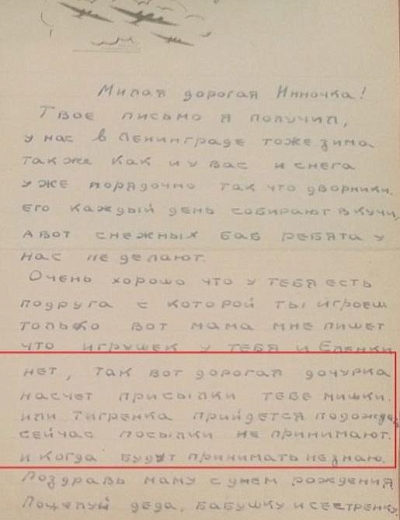 Милая дорогая Инночка!
Твое письмо я получил,
у нас в Ленинграде тоже зима
так же как и у вас и снега
уже порядочно так что дворники
его каждый день собирают в кучи,
а вот снежных баб ребята у
нас не делают.
Очень хорошо что у тебя есть
подруга с которой ты играеш
только вот мама мне пишет
что игрушек у тебя и Еленки
нет, так вот дорогая дочурка
насчет присылки тебе мишки
или тигренка прийдется подождать
сейчас посылки не принимают.
и когда будут принимать не знаю.
Поздравь маму с днем рождения
Поцелуй деда, бабушку и сестренку